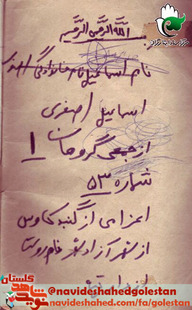 بسم الله الرحمن الرحیم
نام اسماعیل نام خانوادگی اصغری
اسماعیل اصغری
از جمعی گروهان 1
شماره ۵۳
اعزامی از گنبد کاوس
از شهر آزادشهر نام روستا
نوید شاهد گلستان
@navideshahedgolestan
navideshahed.com/fa/golestan